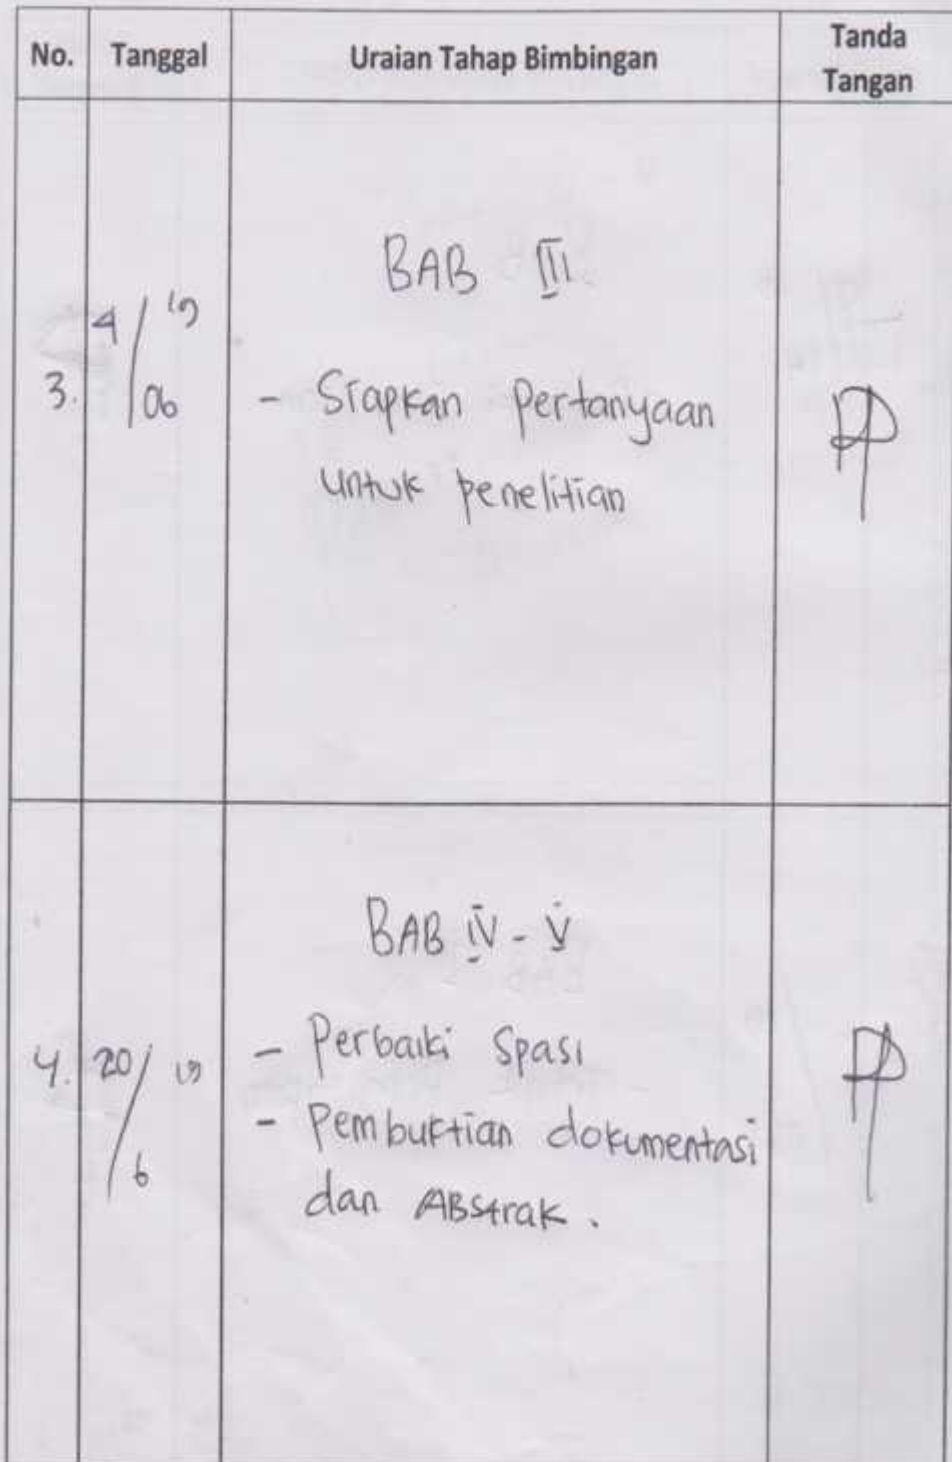 No. Tanggal Uraian Tahap Bimbingan Tanda
Tangan
BAB III
3. 4/06 19
- Siapkan Pertanyaan
untuk penelitian
BAB IV - V
4. 20/6 19
- Perbaiki Spasi
- Pembuktian dokumentasi
dan ABstrak.